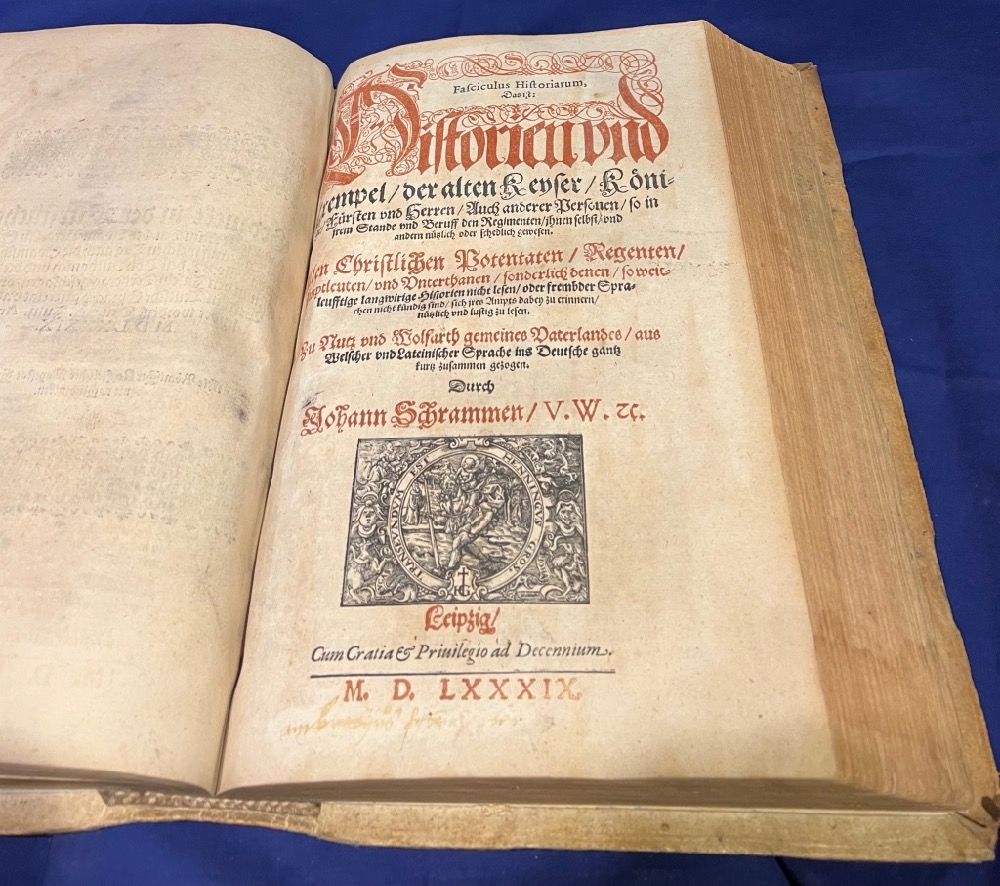 Fasciculus Historiarum,
Das ist:
Historien vnd
Exempel / der alten Keyser / Köni-
Fürsten vnd Herren / Auch anderer Personen / so in
jrem Stande vnd Beruff den Regimenten / jhnen selbst / vnd
andern nützlich oder schedlich gewesen.
Christlichen Potentaten / Regenten /
vnd Vnterthanen / sonderlich denen / so weit-
leufftige langwirige Historien nicht lesen / oder frembder Spra-
chen nicht kündig sind / sich jres Ampts dabey zu erinnern /
nützlich vnd lustig zu lesen.
Zu Nutz vnd Wolfarth gemeines Vaterlandes / aus
Welscher vnd Lateinischer Sprache ins Deutsche gantz
kurtz zusammen gezogen.
Durch
Johann Schrammen / V. W. ꝛc.
TRANSEVNDVM EST
HENNINGVS GROS.
HG
Leipzig /
Cum Gratia & Priuilegio ad Decennium.
M. D. LXXXIX.